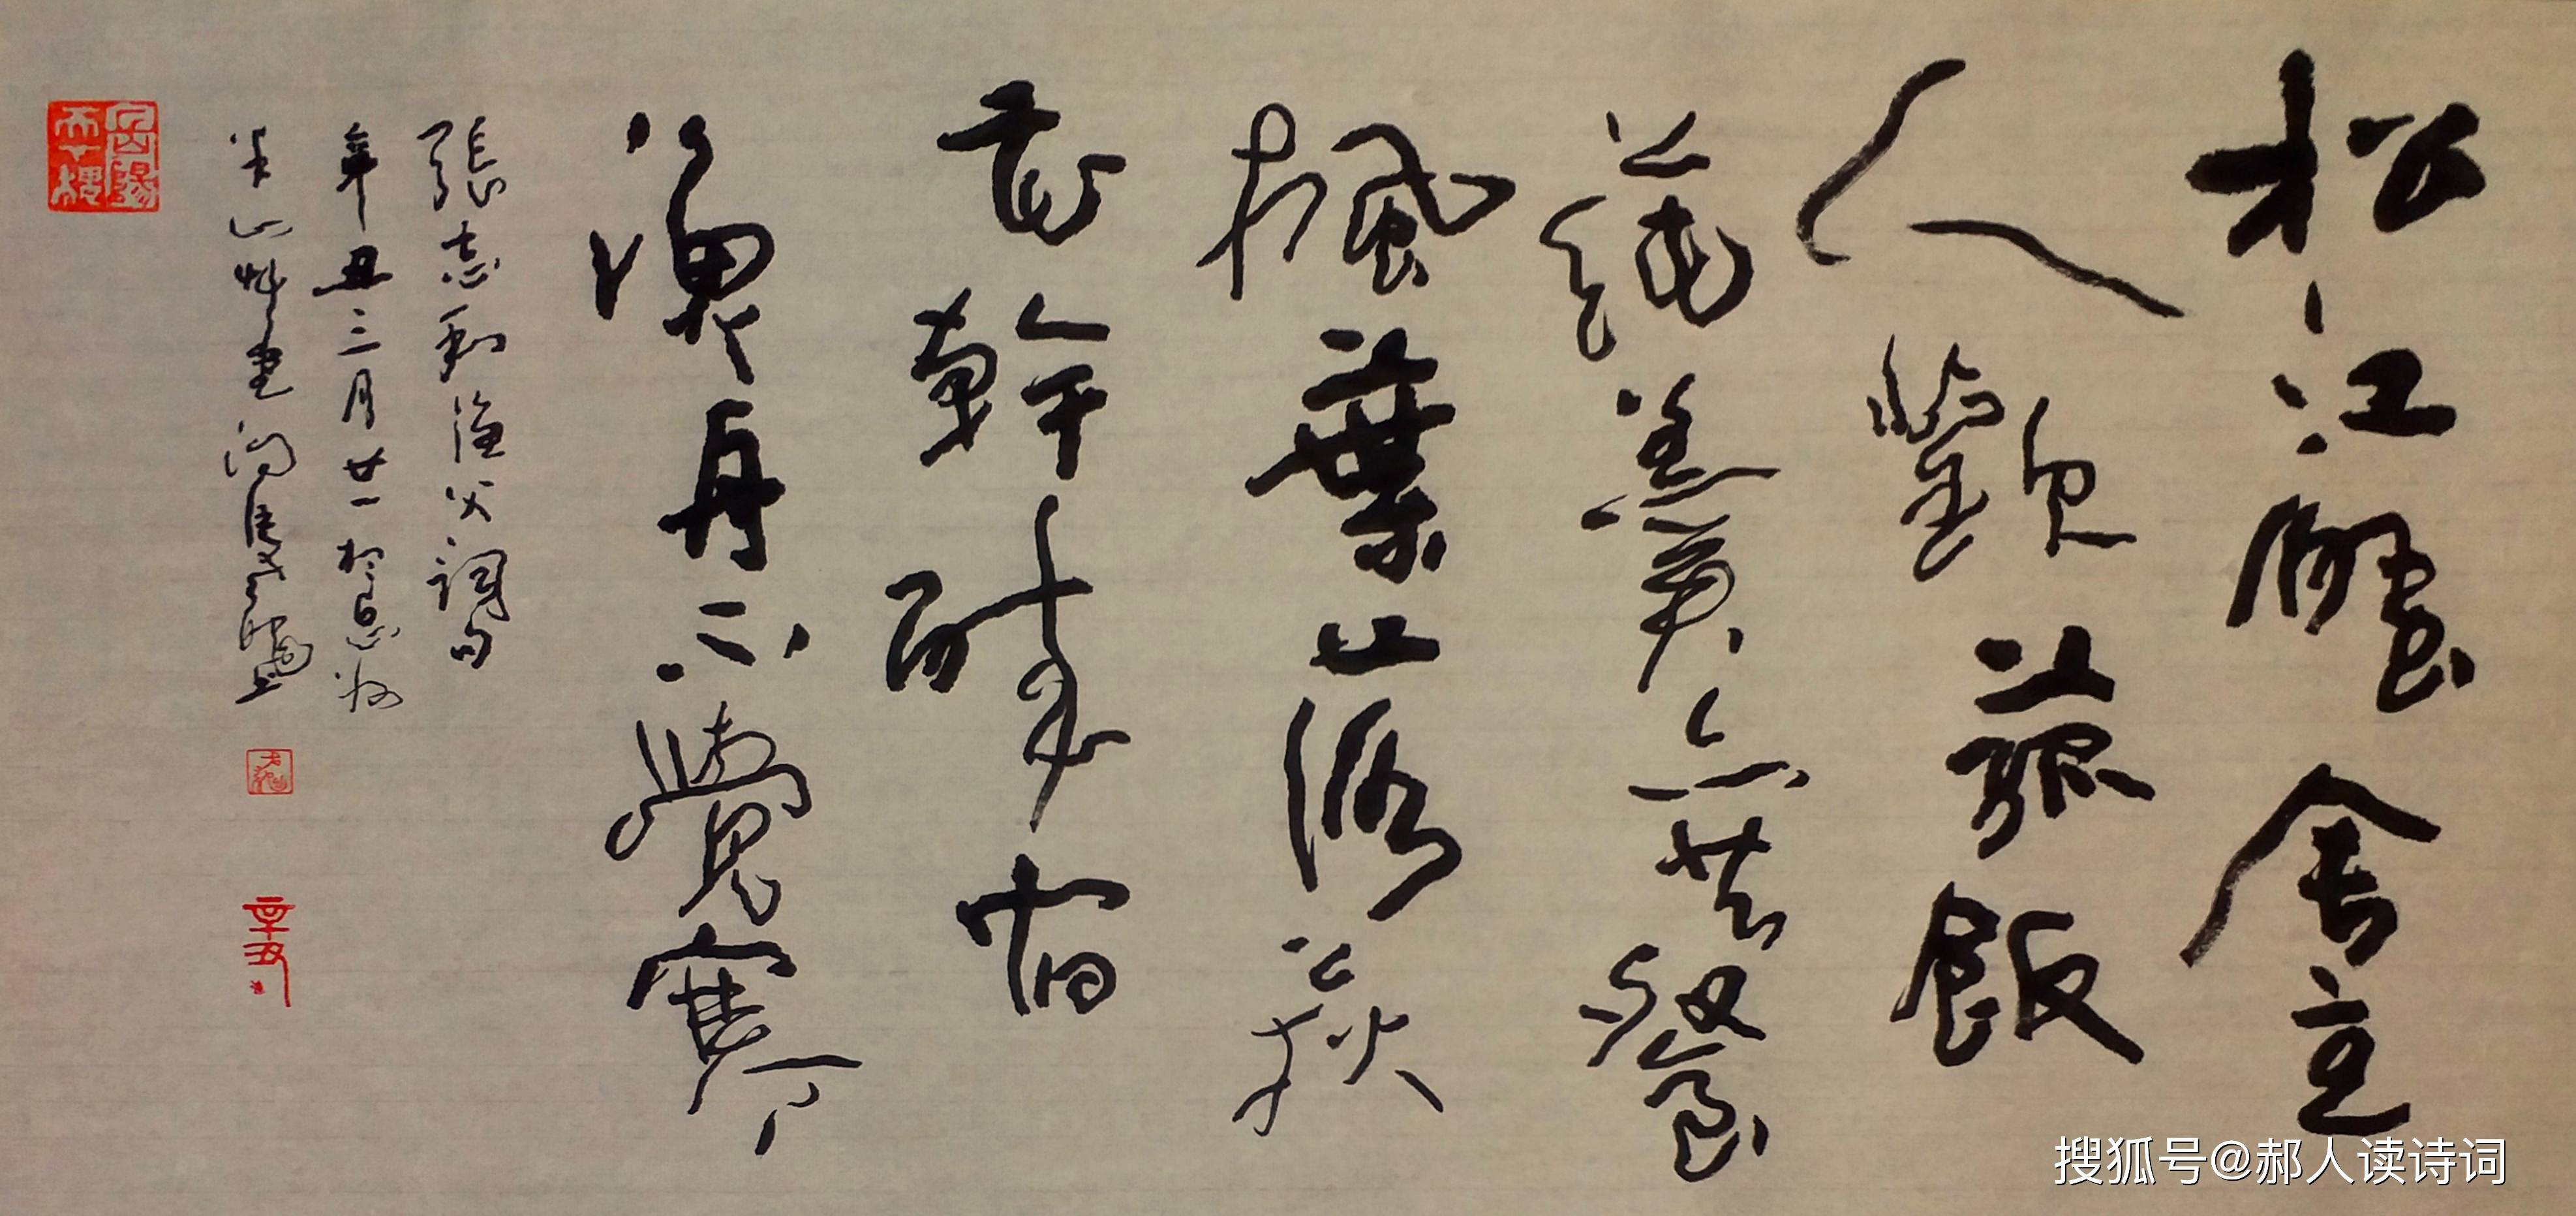 松江蟹舍主
人歡菰飯
蓴羹亦共餐
楓葉落荻
花幹醉宿
漁舟不覺寒
張志和漁父詞句
辛丑三月廿一於
半山草堂
辛丑
搜狐号@郝人读诗词